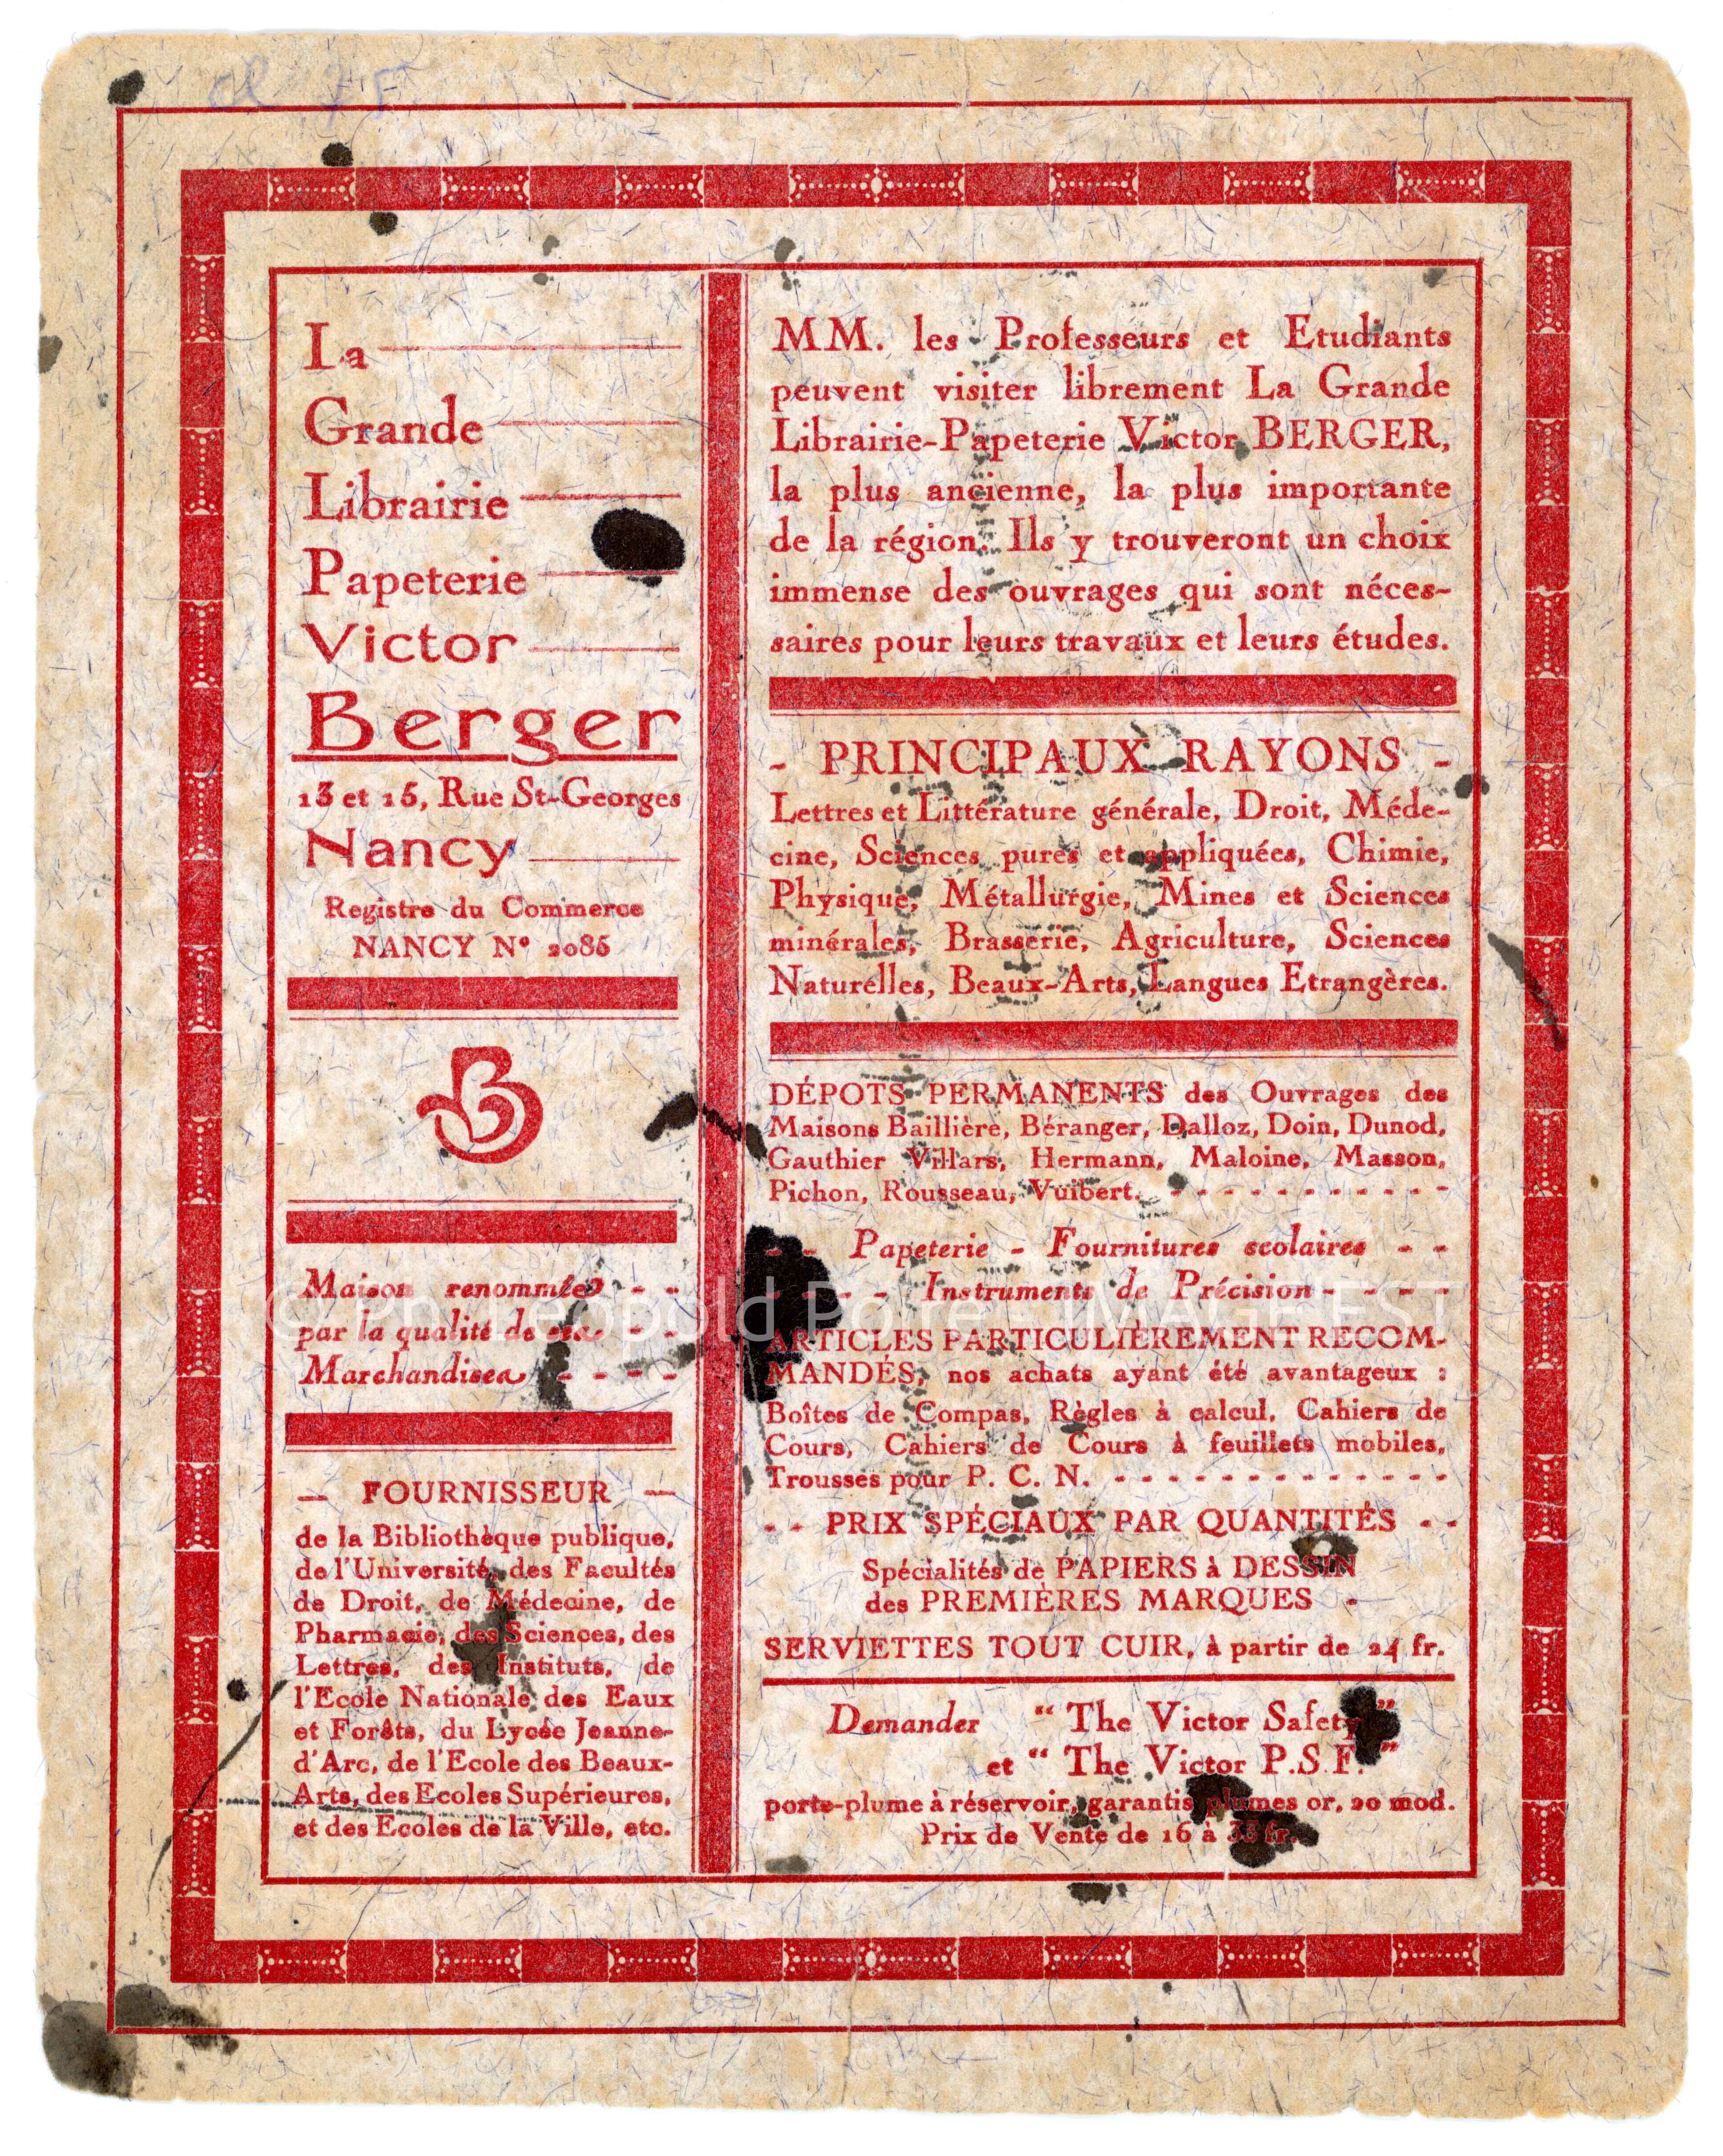 La
Grande
Librairie
Papeterie
Victor
Berger
13 et 15, Rue St-Georges
Nancy
Registre du Commerce
NANCY N° 2085
B
Maison renommée - -
par la qualité de ses - -
Marchandises - - - -
— FOURNISSEUR —
de la Bibliothèque publique,
de l'Université, des Facultés
de Droit, de Médecine, de
Pharmacie, des Sciences, des
Lettres, des Instituts, de
l'Ecole Nationale des Eaux
et Forêts, du Lycée Jeanne-
d'Arc, de l'Ecole des Beaux-
Arts, des Ecoles Supérieures,
et des Ecoles de la Ville, etc.
MM. les Professeurs et Etudiants
peuvent visiter librement La Grande
Librairie-Papeterie Victor BERGER,
la plus ancienne, la plus importante
de la région. Ils y trouveront un choix
immense des ouvrages qui sont néces-
saires pour leurs travaux et leurs études.
- PRINCIPAUX RAYONS -
Lettres et Littérature générale, Droit, Méde-
cine, Sciences pures et appliquées, Chimie,
Physique, Métallurgie, Mines et Sciences
minérales, Brasserie, Agriculture, Sciences
Naturelles, Beaux-Arts, Langues Etrangères.
DÉPOTS PERMANENTS des Ouvrages des
Maisons Baillière, Béranger, Dalloz, Doin, Dunod,
Gauthier Villars, Hermann, Maloine, Masson,
Pichon, Rousseau, Vuibert. - - - - - - - - - - -
- - Papeterie - Fournitures scolaires - -
- - - - Instruments de Précision - - - -
ARTICLES PARTICULIÈREMENT RECOM-
MANDÉS, nos achats ayant été avantageux :
Boîtes de Compas, Règles à calcul, Cahiers de
Cours, Cahiers de Cours à feuillets mobiles,
Trousses pour P. C. N. - - - - - - - - - - - - - -
- - PRIX SPÉCIAUX PAR QUANTITÉS - -
Spécialités de PAPIERS à DESSIN
des PREMIÈRES MARQUES -
SERVIETTES TOUT CUIR, à partir de 24 fr.
Demander " The Victor Safety "
et " The Victor P.S.F. "
porte-plume à réservoir, garantis plumes or, 20 mod.
Prix de Vente de 16 à 35 fr.
© Ph. Léopold Poiré / IMAGE'EST